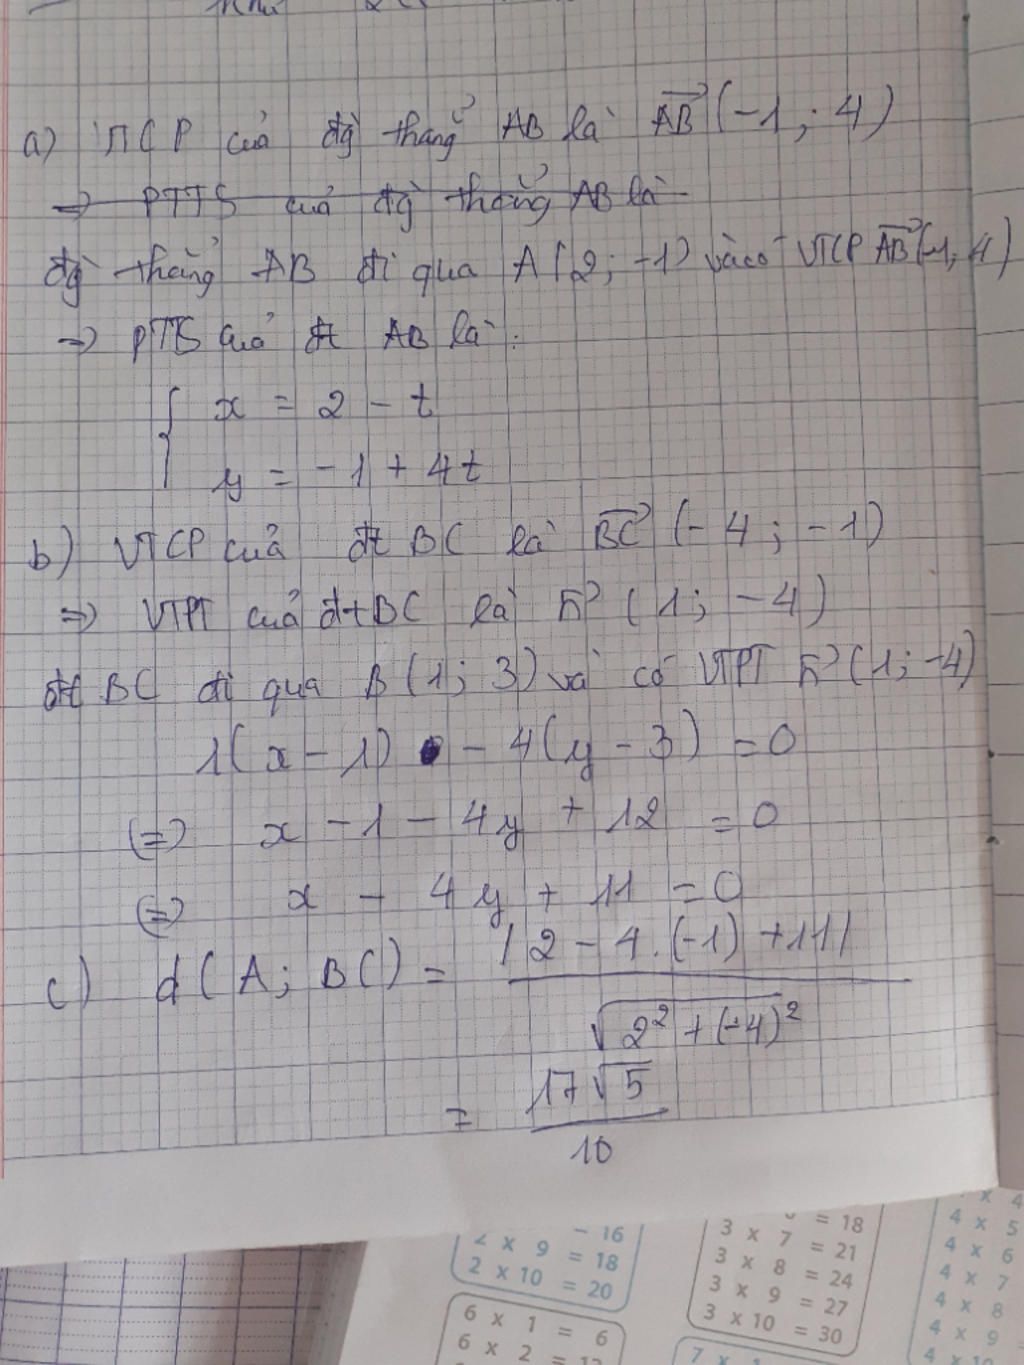 a) VTCP của đg thẳng AB là AB (-1 ; 4)
=> PTTS của đg thẳng AB là
đg thẳng AB đi qua A(2; -1) và có VTCP AB(-1; 4)
=> PTTS của đt AB là :
x = 2 - t
y = -1 + 4t
b) VTCP của đt BC là BC (-4 ; -1)
=> VTPT của đt BC là n (1; -4)
đt BC đi qua B (1; 3) và có VTPT n (1; -4)
1(x - 1) - 4(y - 3) = 0
(=) x - 1 - 4y + 12 = 0
(=) x - 4y + 11 = 0
c) d(A; BC) = |2 - 4.(-1) + 11| / √2² + (-4)²
= 17√5 / 10
- 16
2 x 9 = 18
2 x 10 = 20
= 18
3 x 7 = 21
3 x 8 = 24
3 x 9 = 27
3 x 10 = 30
x 4
4 x 5
4 x 6
4 x 7
4 x 8
4 x 9
6 x 1 = 6
6 x 2 =
7 x